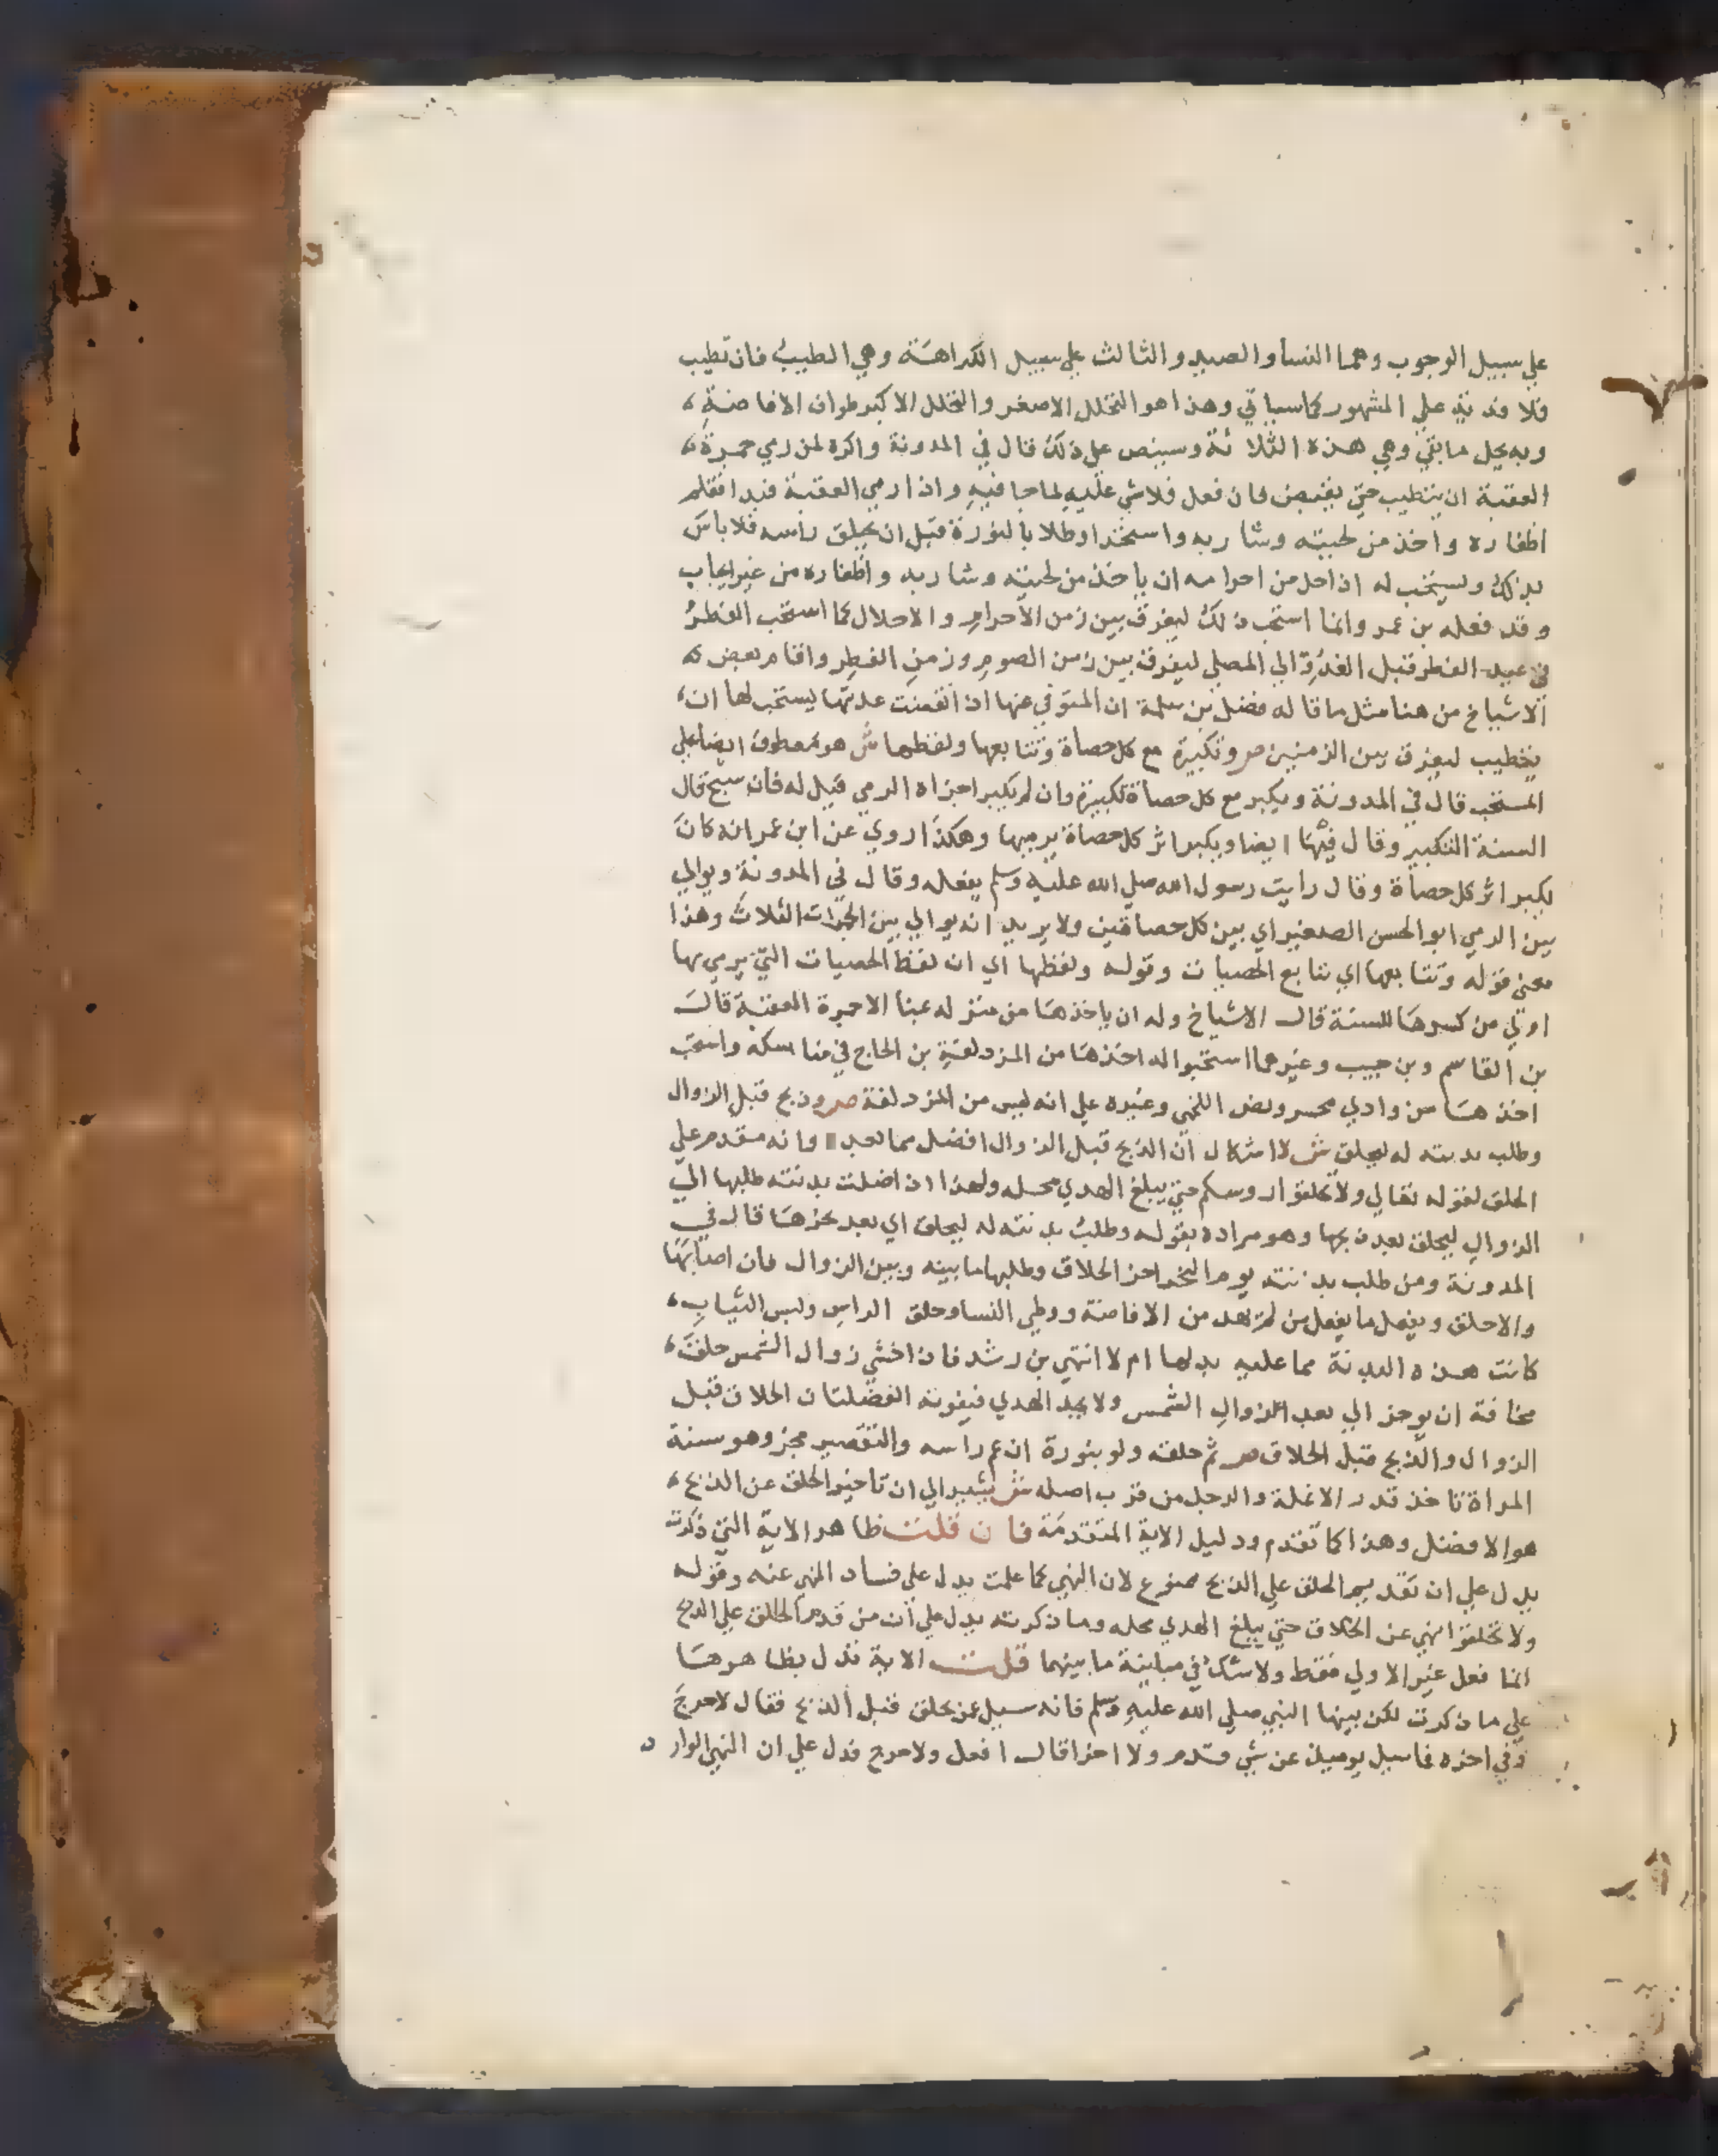 علي سبيل الوجوب وهما النسا والصيد والثالث علي سبيل الكراهة وهي الطيب فان تطيب
فلا فدية علي المشهور كما سياتي وهذا هو التحلل الاصغر والتحلل الاكبر طواف الافاضة
وبه يحل ما بقي وهي هذه الثلاثة وسينص علي ذلك قال في المدونة واكره لمن رمي جمرة
العقبة ان يتطيب حتي يفيض فان فعل فلا شي عليه لما جا فيه واذا رمي العقبة فبدا فقلم
اظفاره واخذ من لحيته وشاربه واستحد او طلا بالنورة قبل ان يحلق راسه فلا باس
بذلك ويستحب له اذا حل من احرامه ان ياخذ من لحيته وشاربه واظفاره من غير ايجاب
وقد فعله بن عمر وانما استحب ذلك ليفرق بين زمن الاحرام والاحلال كما استحب الفطر
في عيد الفطر قبل الغدو الي المصلي ليفرق بين زمن الصوم وزمن الفطر واقام بعض
الاشياخ من هنا مثل ما قاله فضل بن سلمة ان المتوفي عنها اذا انقضت عدتها يستحب لها ان
تتطيب ليفرق بين الزمنين ص وتكبيرة مع كل حصاة وتتابعها ولقطها ش هو معطوف ايضا علي
المستحب قال في المدونة ويكبر مع كل حصاة تكبيرة وان لم يكبر اجزاه الرمي قيل له فان سبح قال
السنة التكبير وقال فيها ايضا ويكبر اثر كل حصاة يرميها وهكذا روي عن ابن عمر انه كان
يكبر اثر كل حصاة وقال رايت رسول الله صلي الله عليه وسلم يفعله وقال في المدونة ويوالي
بين الرمي ابو الحسن الصغير اي بين كل حصاتين ولا يريد انه يوالي بين الجمرات الثلاث وهذا
معني قوله وتتابعها اي تتابع الحصيات وقوله ولقطها اي ان لقط الحصيات التي يرمي بها
اولي من كسرها للسنة قال الاشياخ وله ان ياخذها من منزله عبنا الا جمرة العقبة قال
بن القاسم وبن حبيب وغيرهما استحبوا له اخذها من المزدلفة بن الحاج في مناسكه واستحب
اخذها من وادي محسر ونص اللخمي وغيره علي انه ليس من المزدلفة ص وذبح قبل الزوال
وطلب بدنته له ليحلق ش لا اشكال ان الذبح قبل الزوال افضل مما بعد وانه مقدم علي
الحلق لقوله تعالي ولا تحلقوا روسكم حتي يبلغ الهدي محله ولهذا اذا ضلت بدنته طلبها الي
الزوال ليحلق بعد ذبحها وهو مراده بقوله وطلب بدنته له ليحلق اي بعد نحرها قال في
المدونة ومن طلب بدنته يوم النحر اخر الحلاق وطلبها ما بينه وبين الزوال فان اصابها
والا حلق ويفعل ما يفعل من لم يهد من الافاضة ووطي النسا وحلق الراس ولبس الثياب
كانت هذه البدنة مما عليه بدلها ام لا انتهي بن رشد فاذا خشي زوال الشمس حلق
مخافة ان يوخر الي بعد الزوال الشمس ولا يجد الهدي فيفوته الفضلتان الحلاق قبل
الزوال والذبح قبل الحلاق ص ثم حلقه ولو بنورة ان عم راسه والتقصير مجز وهو سنة
المراة تاخذ قدر الانملة والرجل من قرب اصله ش يشير الي ان تاخير الحلق عن الذبح
هو الافضل وهذا كما تقدم ودليل الاية المتقدمة فان قلت ظاهر الاية التي ذكرت
يدل علي ان تقديم الحلق علي الذبح ممنوع لان النهي كما علمت يدل علي فساد المنهي عنه وقوله
ولا تحلقوا نهي عن الحلاق حتي يبلغ الهدي محله وما ذكرته يدل علي ان من قدم الحلق علي الذبح
انما فعل غير الاولي فقط ولا شك في مباينة ما بينهما قلت الاية تدل بظاهرها
علي ما ذكرت لكن بينها النبي صلي الله عليه وسلم فانه سيل عن حلق قبل الذبح فقال لا حرج
وفي اخره فما سيل يوميذ عن شي قدم ولا اخر الا قال افعل ولا حرج فدل علي ان النهي الوارد